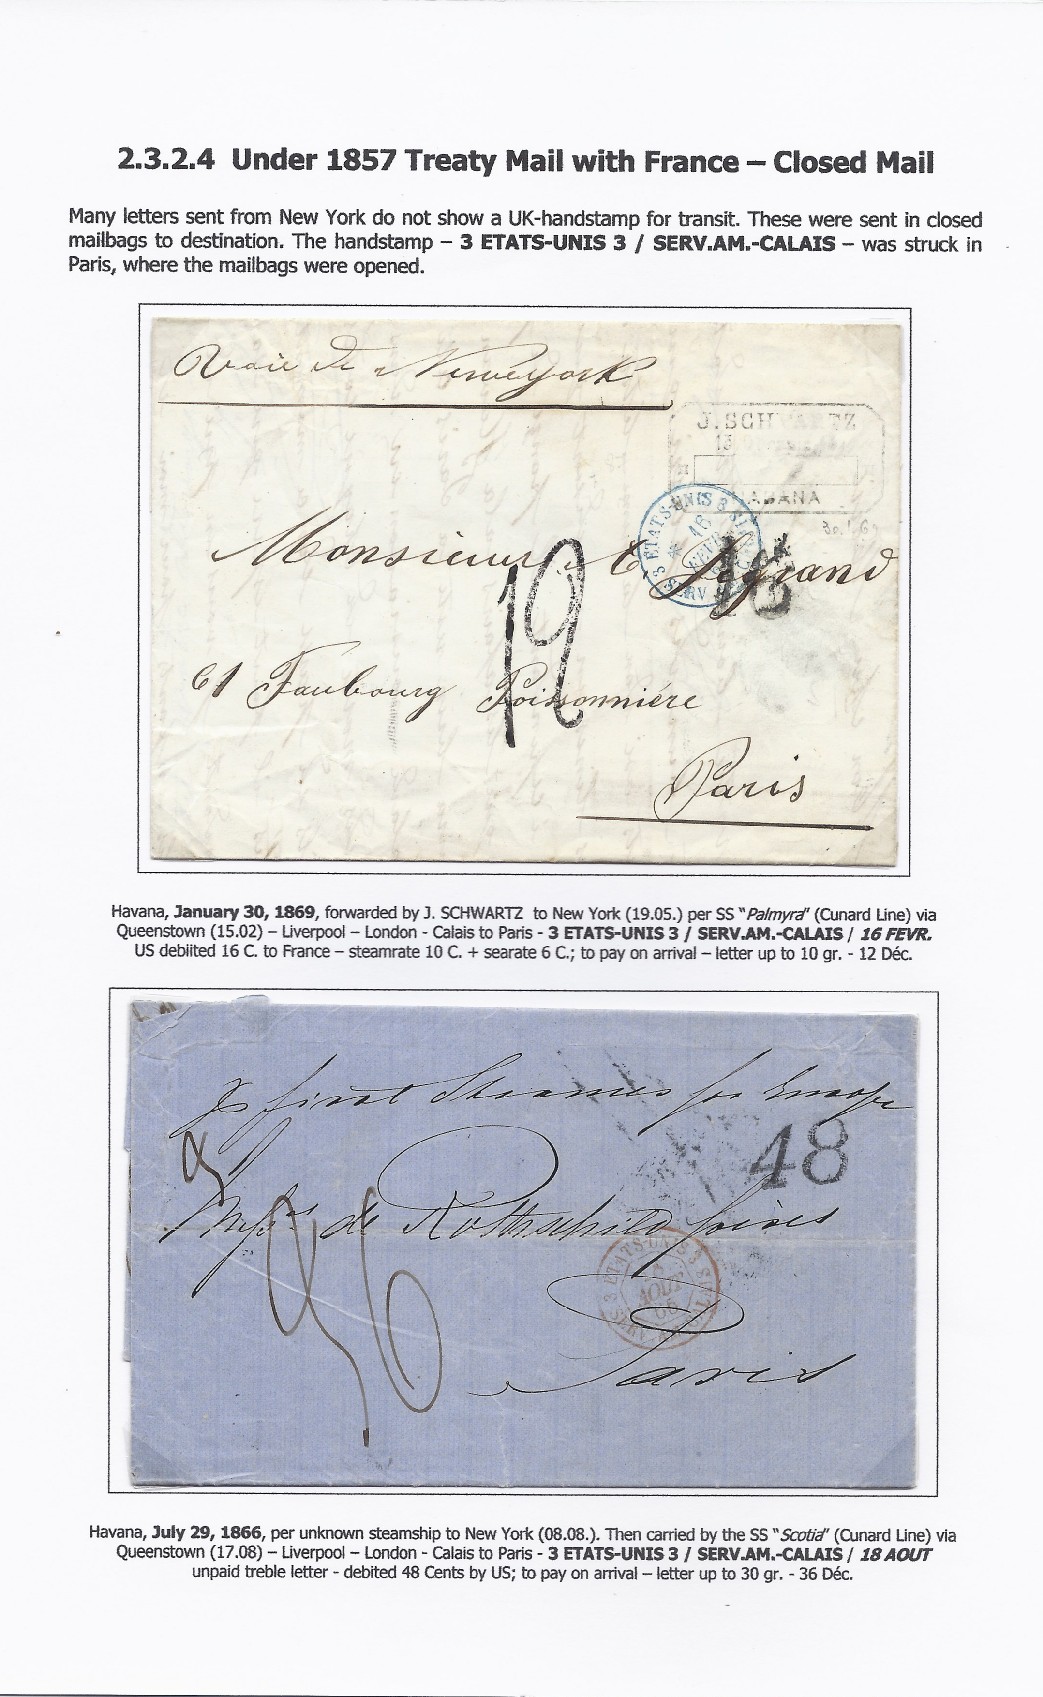 2.3.2.4 Under 1857 Treaty Mail with France – Closed Mail
Many letters sent from New York do not show a UK-handstamp for transit. These were sent in closed
mailbags to destination. The handstamp – 3 ETATS-UNIS 3 / SERV.AM.-CALAIS – was struck in
Paris, where the mailbags were opened.
Voie de Newyork
J. SCHWARTZ
HABANA
3 ETATS-UNIS 3 SERV
16
FEVR
30.1.69
Monsieur E Legrand
16
12
61 Faubourg Poissonniére
Paris
Havana, January 30, 1869, forwarded by J. SCHWARTZ to New York (19.05.) per SS "Palmyra" (Cunard Line) via
Queenstown (15.02) – Liverpool – London - Calais to Paris - 3 ETATS-UNIS 3 / SERV.AM.-CALAIS / 16 FEVR.
US debiited 16 C. to France – steamrate 10 C. + searate 6 C.; to pay on arrival – letter up to 10 gr. - 12 Déc.
p first Steamer for Europe
48
Messrs de Rothschild frères
36
3 ETATS-UNIS 3 SERV
AOUT
66
Paris
Havana, July 29, 1866, per unknown steamship to New York (08.08.). Then carried by the SS "Scotia" (Cunard Line) via
Queenstown (17.08) – Liverpool – London - Calais to Paris - 3 ETATS-UNIS 3 / SERV.AM.-CALAIS / 18 AOUT
unpaid treble letter - debited 48 Cents by US; to pay on arrival – letter up to 30 gr. - 36 Déc.